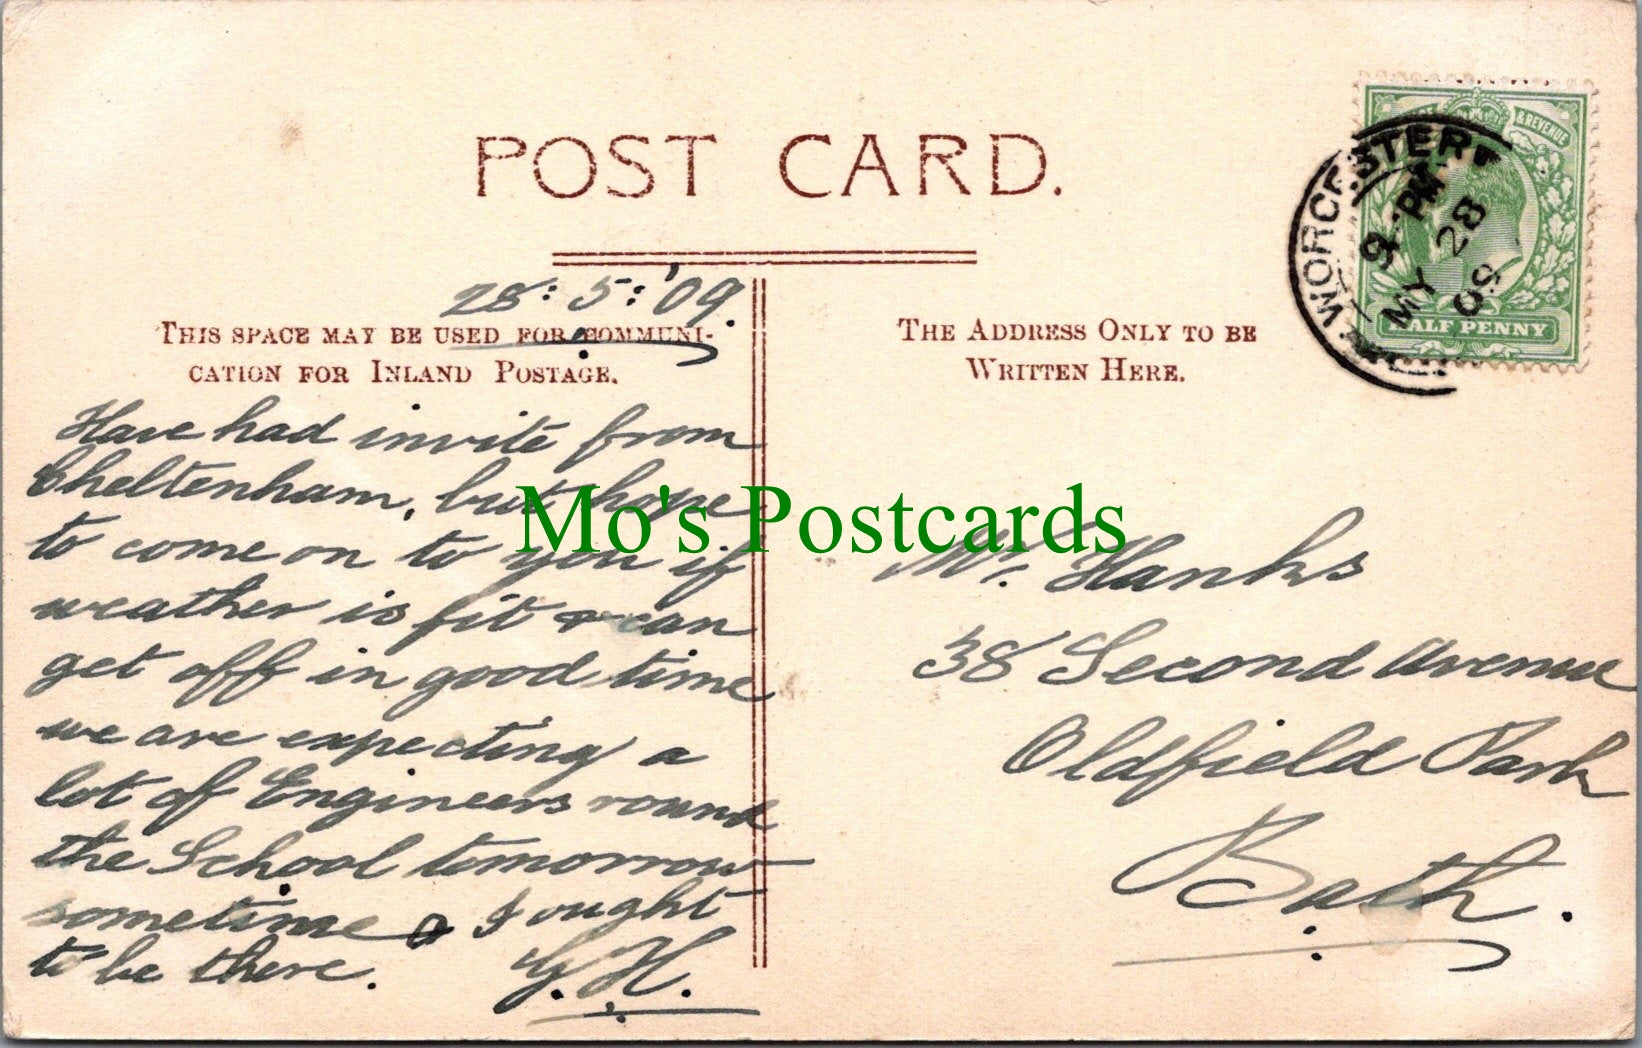 POST CARD.
28:5:'09.
THIS SPACE MAY BE USED FOR COMMUNI-
CATION FOR INLAND POSTAGE.
Have had invite from
Cheltenham, but hope
to come on to you if
weather is fit & can
get off in good time
we are expecting a
lot of Engineers round
the School tomorrow
sometime & I ought
to be there. G.H.
THE ADDRESS ONLY TO BE
WRITTEN HERE.
Mr. Hanks
38 Second Avenue
Oldfield Park
Bath.
& REVENUE
HALF PENNY
WORCESTER
9 PM
MY 28
09
Mo's Postcards